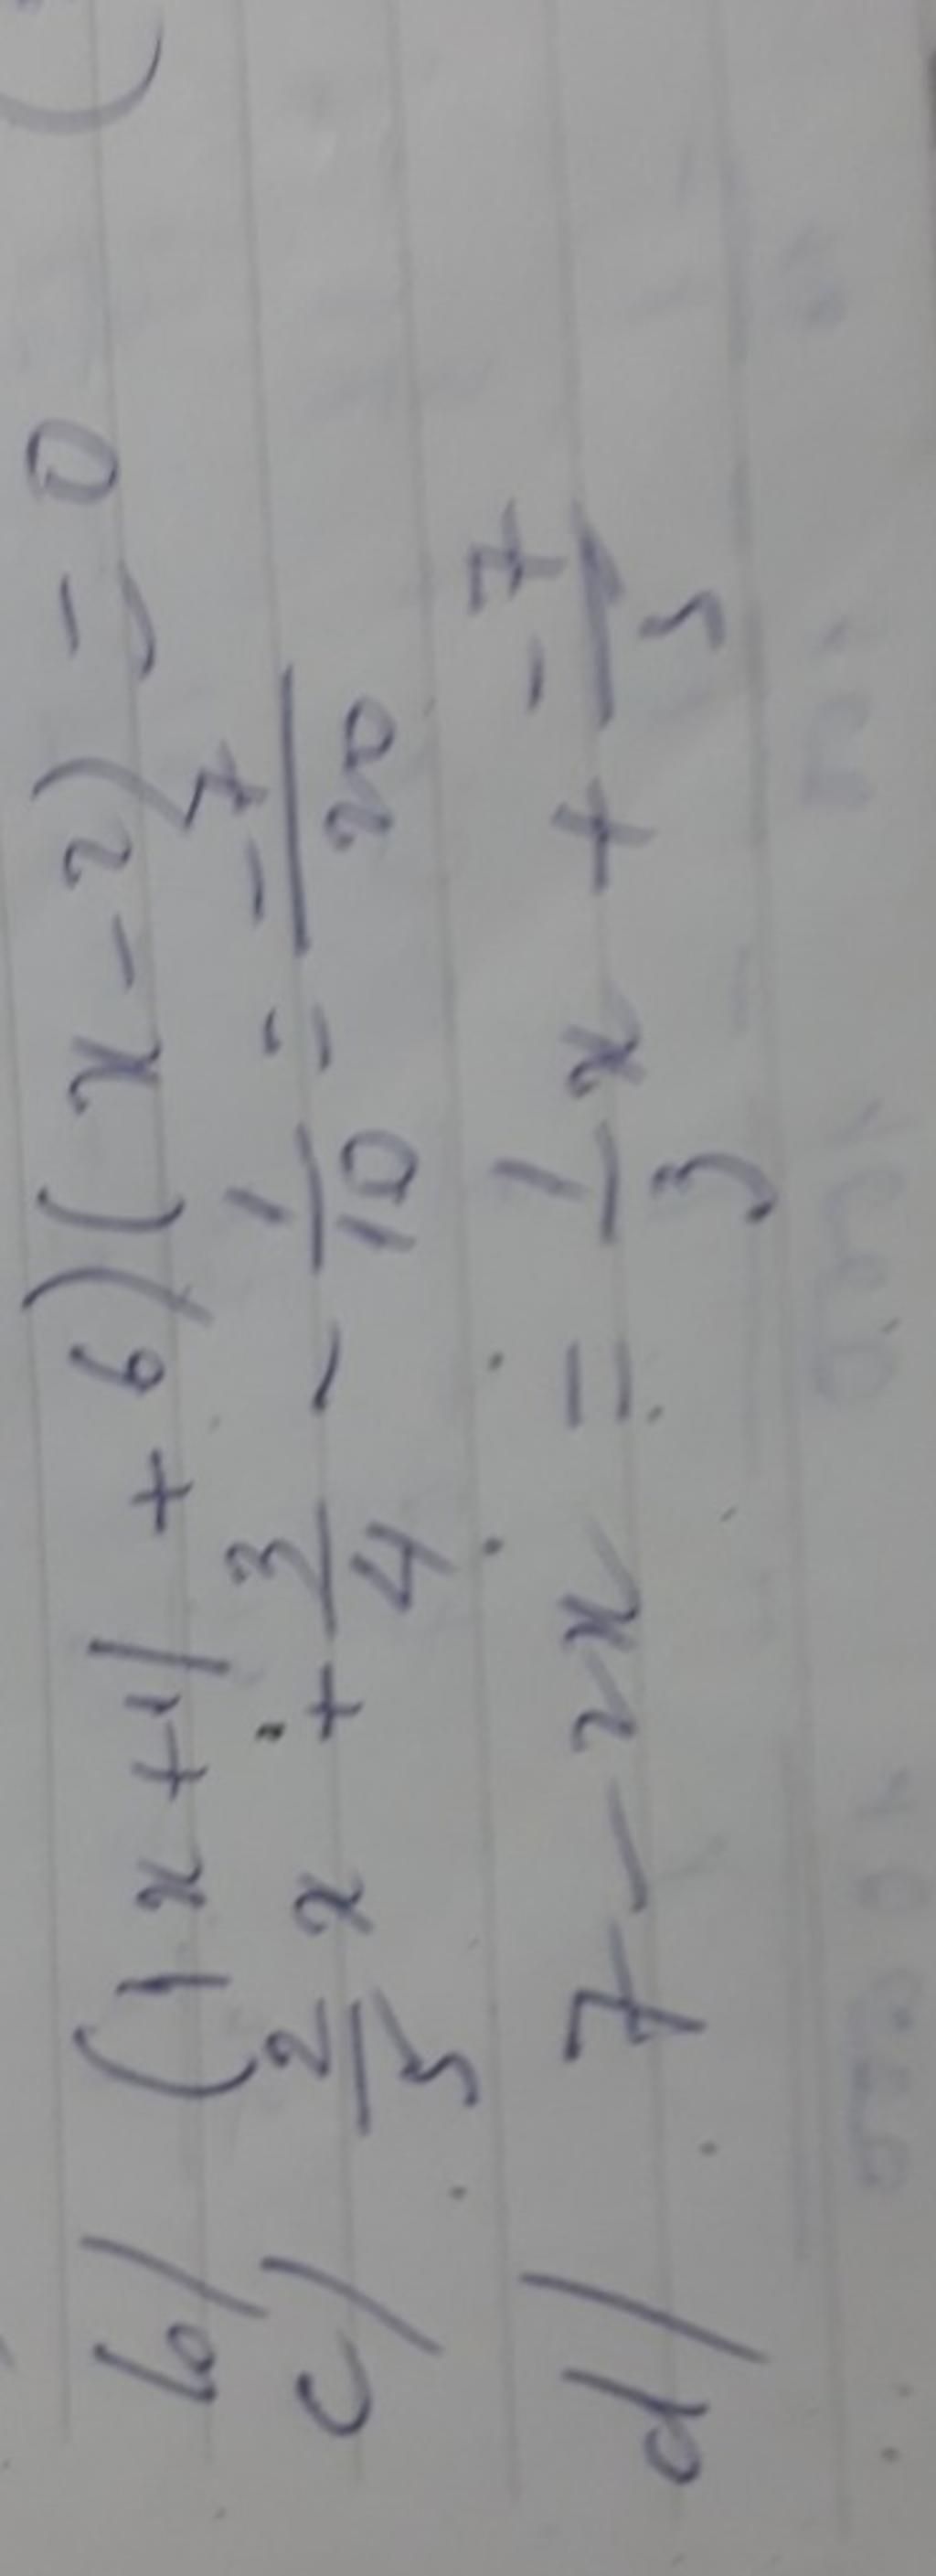 b/ (|x+1| + 6)(x - 2) = 0
c/ 2/5 x + 3/4 - 1/10 = -7/20
d/ 7 - 2x = 1/3 x + -7/5